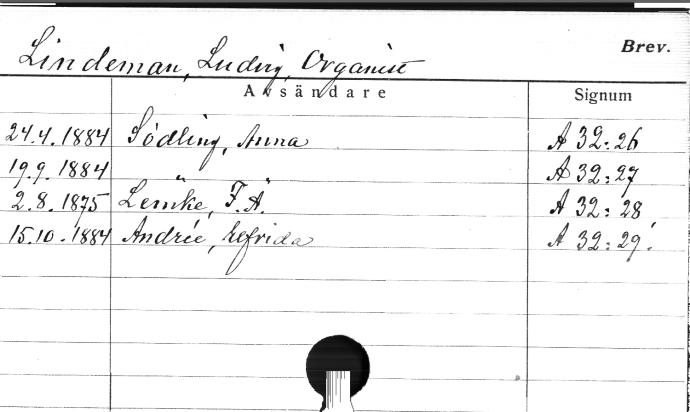 Lindeman, Ludvig, Organist
Brev.
Avsändare
Signum
24.4.1884 Södling, Anna A 32:26
19.9.1884 " " A 32:27
2.8.1875 Lemke, F.A. A 32:28
15.10.1884 Andrée, Elfrida A 32:29.